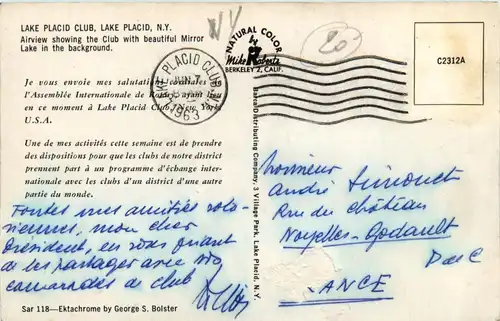 LAKE PLACID CLUB, LAKE PLACID, N.Y.
Airview showing the Club with beautiful Mirror
Lake in the background.
NY
NATURAL COLOR
Mike Roberts
BERKELEY 2, CALIF.
20
C2312A
LAKE PLACID CLUB N.Y.
JUN
1963
Je vous envoie mes salutations cordiales de
l'Assemblée Internationale de Rotary ayant lieu
en ce moment à Lake Placid Club, New York,
U.S.A.
Une de mes activités cette semaine est de prendre
des dispositions pour que les clubs de notre district
prennent part à un programme d'échange inter-
nationale avec les clubs d'un district d'une autre
partie du monde.
Toutes mes amitiés rota-
riennes, mon cher
Président, en vous priant
de les partager avec vos
camarades de club
Sar 118—Ektachrome by George S. Bolster
Barcel Distributing Company, 3 Village Park, Lake Placid, N.Y.
Monsieur
André Simonet
Rue du Château
Noyelles-Godault
P de C
ANCE